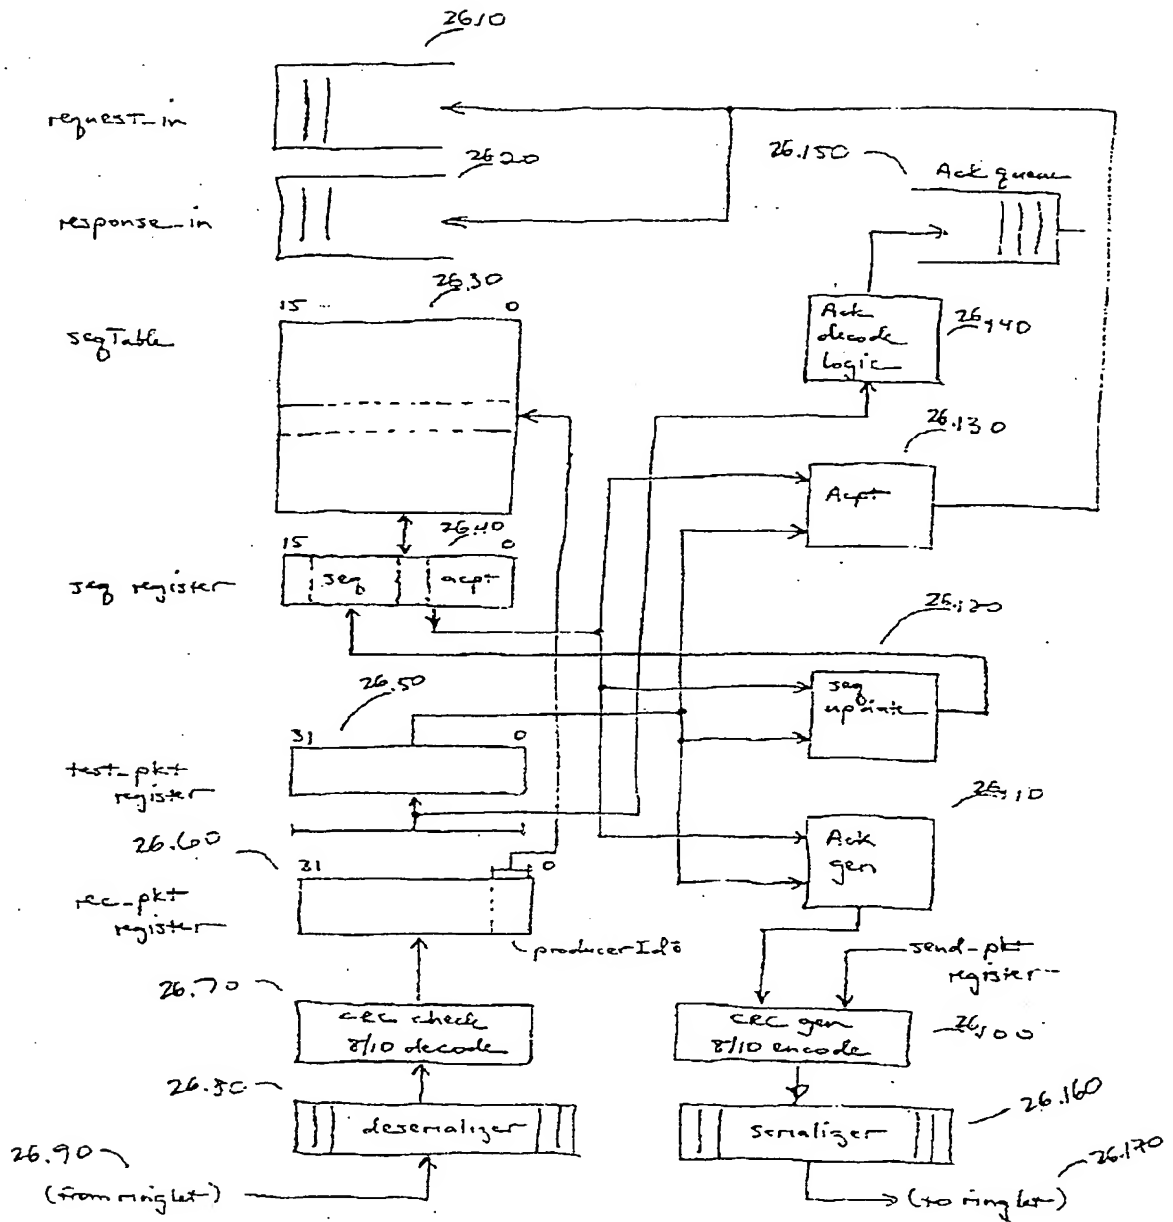 26.10
request_in
26.20
response_in
26.150
Ack queue
26.30
15 ... 0
seqTable
Ack
decode
Logic
26.140
26.130
Acpt
26.40
15 0
seq acpt
seq register
26.120
seq
update
26.50
31 0
test_pkt
register
26.110
Ack
gen
26.60
31 0
rec_pkt
register
producerId
send_pkt
register
26.70
CRC check
8/10 decode
CRC gen
8/10 encode
26.100
26.80
deserializer
serializer
26.160
26.90
(from ringlet)
26.170
(to ringlet)